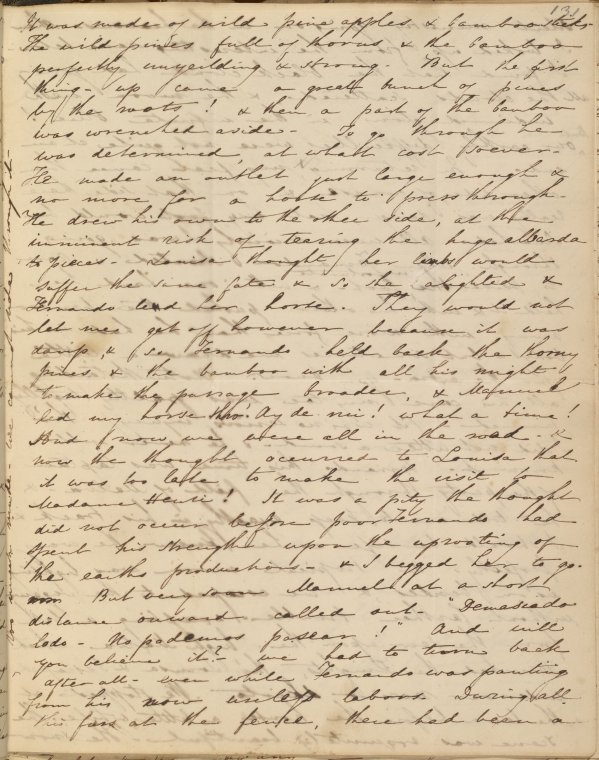 131
It was made of wild pine apples & bamboo sticks.
The wild pines full of horns & the bamboo
perfectly unyeilding & strong. But the first
thing - up came a great bunch of pines
by the roots! & then a part of the bamboo
was wrenched aside - To go through he
was determined, at what cost soever -
He made an outlet just large enough &
no more for a horse to press through -
He drew his own to the other side, at the
imminent risk of tearing the huge albarda
to pieces - Louisa thought her limbs would
suffer the same fate & so she alighted &
Fernando led her horse. They would not
let me get off however because it was
damp, & so Fernando held back the thorny
pines & the bamboo with all his might
to make the passage broader, & Manuel
led my horse thro. Ay de mi! what a time!
But now we were all in the road - &
now the thought occurred to Louisa that
it was too late to make the visit to
Madame ! It was a pity the thought
did not occur before poor Fernando had
spent his strength upon the uprooting of
the earths productions - & I begged her to go.
But very soon Manuel at a short
distance onward called out - "Demasiado
lodo - No podemos pasear!" And will
you believe it? we had to turn back
after all - even while Fernando was panting
from his now useless labors. During all
this fuss at the fence, there had been a